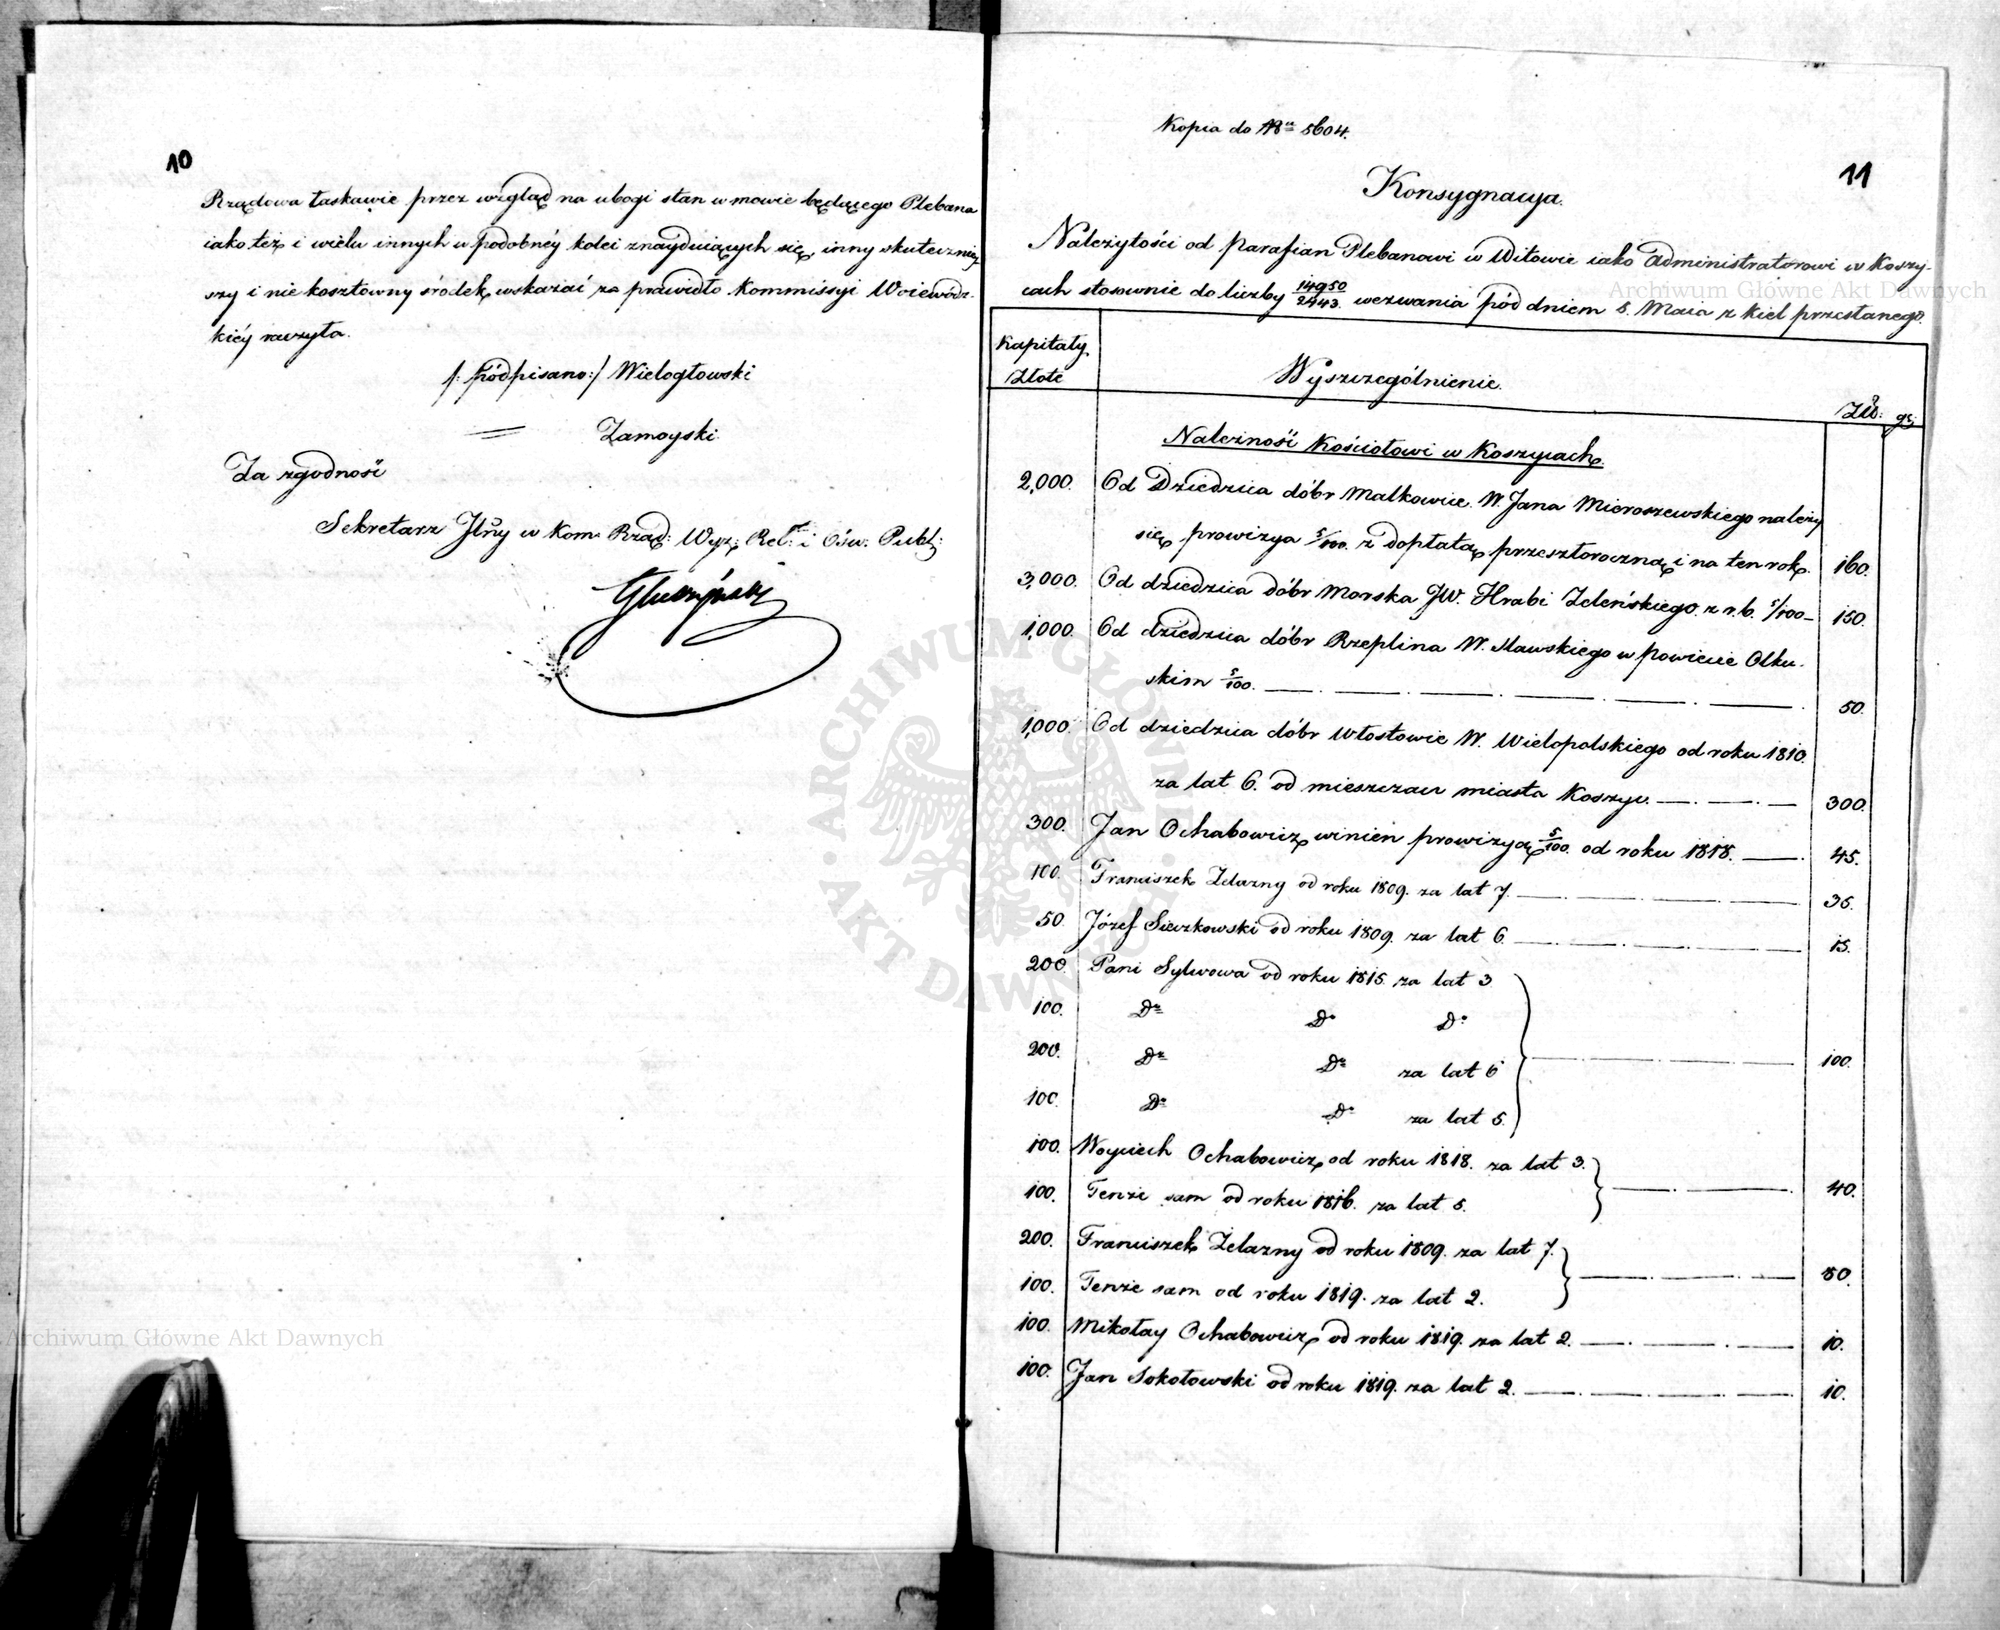 10
Rządowa łaskawie przez wzgląd na ubogi stan w mowie będącego Plebana
iako też i wielu innych w podobnéy kolei znayduiących się, inny skutecznie
szy i nie kosztowny środek, wskazać za prawidło Kommissyi Woiewódz-
kiéy raczyła.
/: pódpisano :/ Wielogłowski
= Zamoyski
Za zgodność
Sekretarz Jlny w Kom: Rząd: Wyz: Rel: i Ośw: Publ:
11
Kopia do 5604.
Konsygnacya.
Należytości od parafian Plebanowi w Witowie iako Administratorowi w Koszy-
cach stosownie do liczby 14950/2443. wezwania pód dniem 5. Maia z Kiel przesłanego.
Kapitały Złote
Wyszczególnienie.
Zło: gr:
Należność Kościołowi w Koszycach.
2,000. Od Dziedzica dóbr Malkowice W. Jana Mieroszewskiego należy
się prowizya 5/100. z dopłatą przeszłoroczną i na ten rok. 160.
3,000. Od dziedzica dóbr Morska JW. Hrabi Zeleńskiego z r.b. 5/100 — 150.
1,000. Od dziedzica dóbr Rzeplina W. Sławskiego w powiecie Olku-
skim 5/100. — 50.
1,000. Od dziedzica dóbr Włostowie W. Wielopolskiego od roku 1810.
za lat 6. od mieszczan miasta Koszyc. — 300.
300. Jan Ochabowicz winien prowizyą 5/100. od roku 1818. — 45.
100. Franciszek Zelazny od roku 1809. za lat 7. — 35.
50. Józef Sieczkowski od roku 1809. za lat 6 — 15.
200. Pani Sylwowa od roku 1815. za lat 3
100. Do Do Do
200. Do Do za lat 6 — 100.
100. Do Do za lat 5.
100. Woyciech Ochabowicz od roku 1818. za lat 3.
100. Tenże sam od roku 1816. za lat 5. — 40.
200. Franciszek Zelazny od roku 1809. za lat 7.
100. Tenże sam od roku 1819. za lat 2. — 80.
100. Mikołay Ochabowicz od roku 1819. za lat 2. — 10.
100. Jan Sokołowski od roku 1819. za lat 2. — 10.
Archiwum Główne Akt Dawnych
Archiwum Główne Akt Dawnych
ARCHIWUM GŁÓWNE AKT DAWNYCH